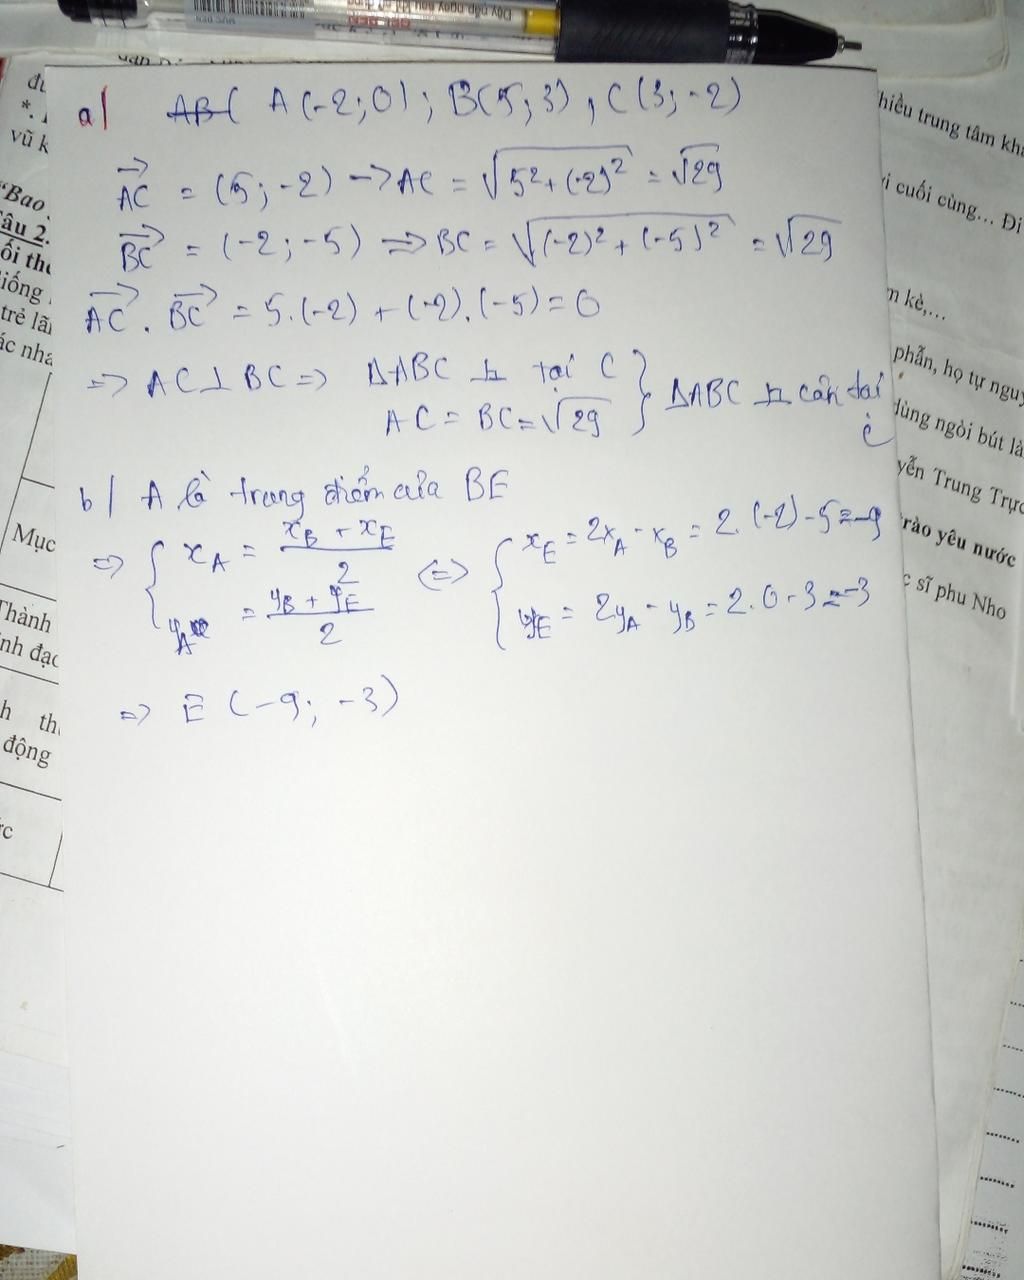 a) AB( A(-2;0); B(5;3), C(3;-2)
AC = (5;-2) → AC = √(5²+(-2)²) = √29
BC = (-2;-5) ⇒ BC = √((-2)²+(-5)²) = √29
AC . BC = 5.(-2) + (-2).(-5) = 0
⇒ AC ⊥ BC ⇒ ΔABC ⊥ tại C } ΔABC ⊥ cân tại C
AC = BC = √29
b) A là trung điểm của BE
⇒ { x_A = (x_B + x_E)/2 ⇔ { x_E = 2x_A - x_B = 2.(-2) - 5 = -9
y_A = (y_B + y_E)/2 y_E = 2y_A - y_B = 2.0 - 3 = -3
⇒ E (-9; -3)
vũ k
"Bao
âu 2.
ối thư
iống
trẻ lãi
ác nha
Mục
Thành
nh đạc
h th
động
ức
Dậy nắp ngay sau khi
hiều trung tâm kha
i cuối cùng... Đi
n kè,...
phẫn, họ tự nguy
dùng ngòi bút là
yễn Trung Trực
rào yêu nước
c sĩ phu Nho